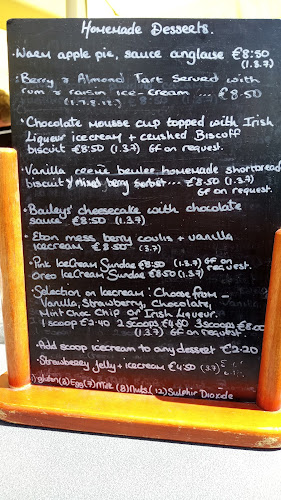 Homemade Desserts.
Warm apple pie, sauce anglaise €8.50
(1.3.7)
Berry & Almond Tart Served with
rum & raisin ice-cream ... €8.50
(1.7.8.12.)
Chocolate mousse cup topped with Irish
Liqueur icecream + crushed Biscoff
biscuit €8.50 (1.3.7) GF on request.
Vanilla creme brulee homemade shortbread
biscuit & mixed berry sorbet ... €8.50 (1.3.7)
GF on request.
Baileys cheesecake with chocolate
sauce €8.50 (1.3.7)
Eton mess, berry coulis + vanilla
icecream €8.50 (3.7)
Pink IceCream Sundae €8.50 (1.3.7) GF on
request.
Oreo IceCream Sundae €8.50 (1.3.7)
Selection on Icecream: Choose from -
Vanilla, Strawberry, Chocolate,
Mint Choc Chip or Irish Liqueur.
1 scoop €2.40 2 scoops €4.80 3 scoops €8.00
(1.3.7) GF on request.
Add scoop icecream to any dessert €2.20
Strawberry jelly + icecream €4.50 (3.7)
1) gluten (3) Egg (7) Milk (8) Nuts (12) Sulphir Dioxide